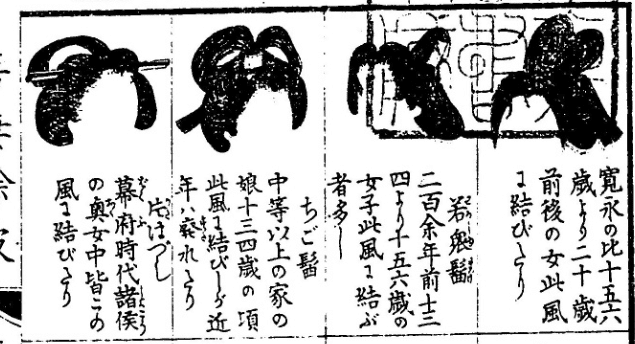 寛永の比十五六
歳より二十歳
前後の女此風
に結びたり
若衆髷
二百余年前十三
四より十五六歳の
女子此風に結ぶ
者多し
ちご髷
中等以上の家の
娘十三四歳の頃
此風に結びしが近
年ハ廃れたり
片はづし
幕府時代諸侯
の奥女中皆この
風に結びたり